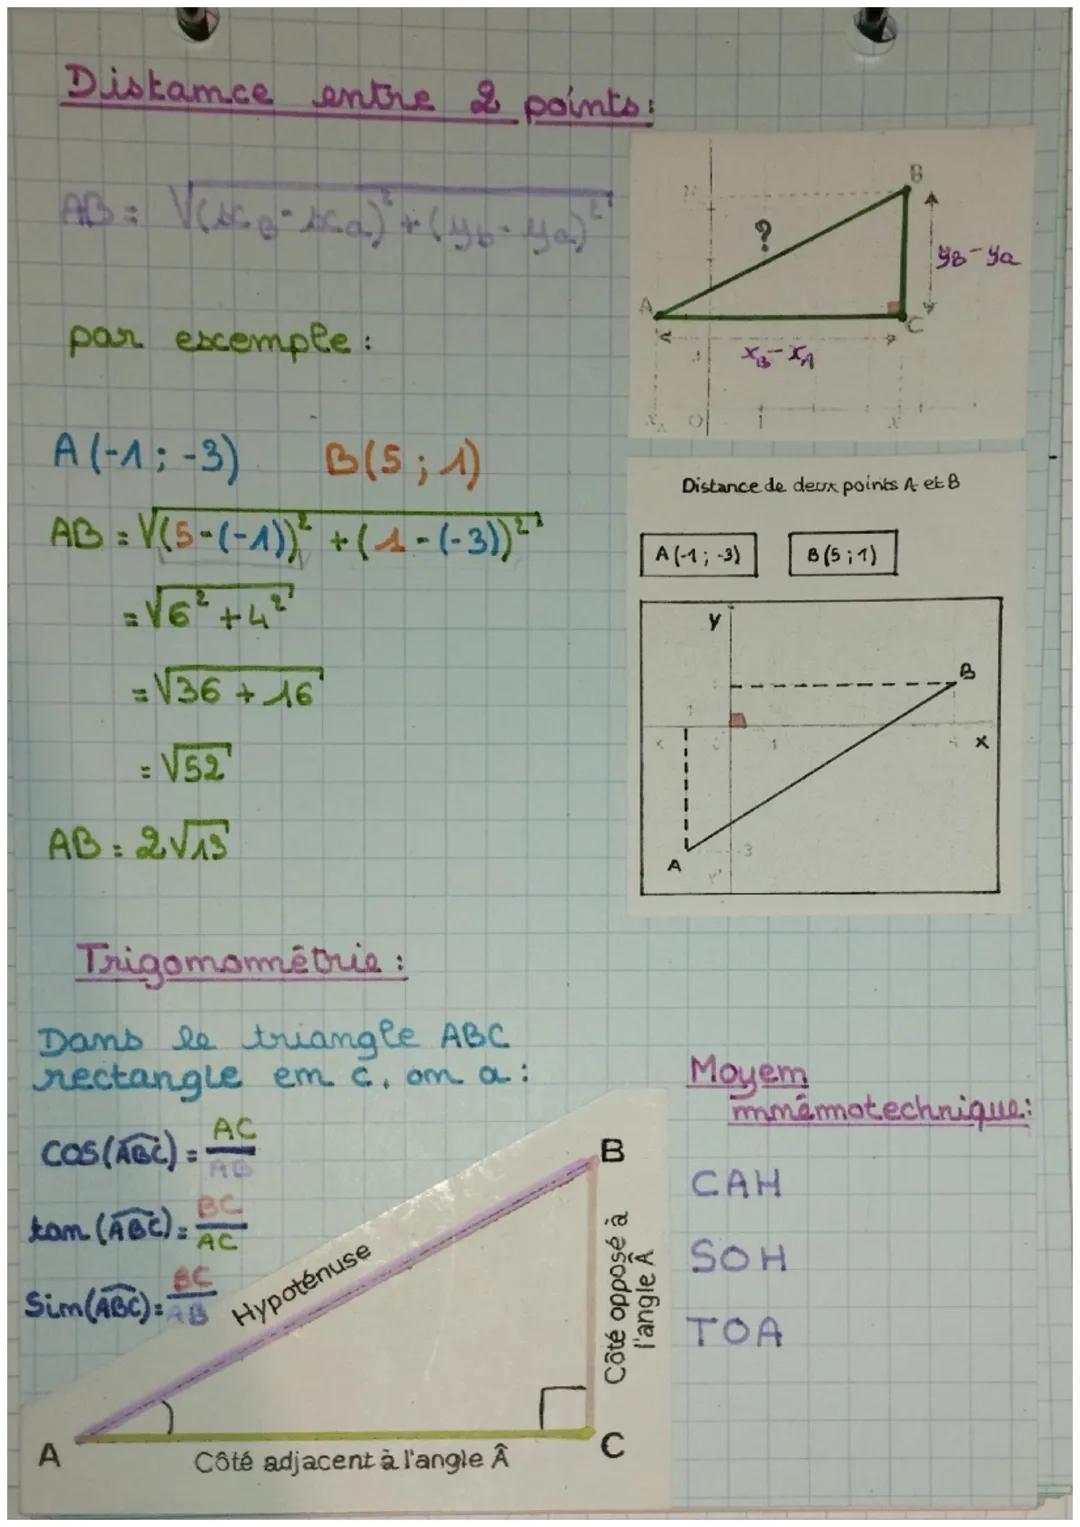 Distance entre 2 points:
AB = √(x_B - x_a)² + (y_b - y_a)²
par exemple :
A(-1 ; -3) B(5 ; 1)
AB = √(5-(-1))² + (1-(-3))²
= √6² + 4²
= √36 + 16
= √52
AB = 2√13
B
?
y_B - y_a
A
C
x_B - x_A
O
1
Distance de deux points A et B
A(-1 ; -3)
B(5 ; 1)
y
B
1
x
-3
A
Trigonométrie :
Dans le triangle ABC
rectangle en C, on a :
cos(ABC) = AC/AB
tan(ABC) = BC/AC
Sin(ABC) = BC/AB
Hypoténuse
B
Côté opposé à
l'angle Â
A
Côté adjacent à l'angle Â
C
Moyen
mnémotechnique:
CAH
SOH
TOA